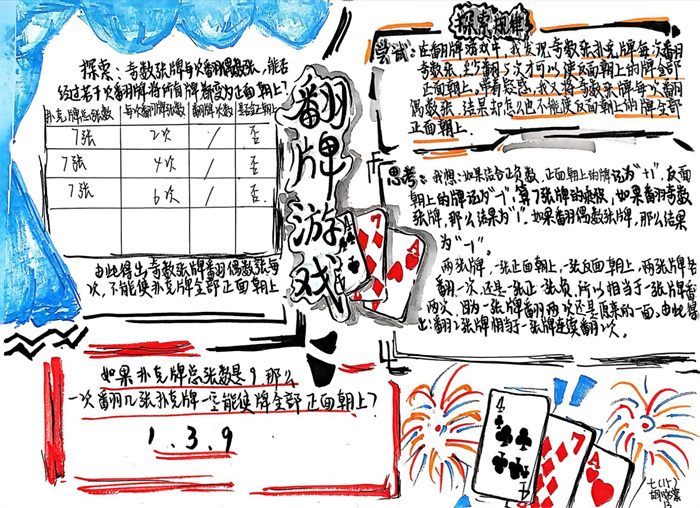 翻牌游戏
探索:奇数张牌每次翻偶数张,能否
经过若干次翻牌将所有牌都变为正面朝上?
扑克牌总张数 每次翻牌张数 翻牌次数 是否正朝上
7张 2次 / 否
7张 4次 / 否
7张 6次 / 否
由此得出奇数张牌翻偶数张每
次,不能使扑克牌全部正面朝上
如果扑克牌总张数是9,那么
一次翻几张扑克牌一定能使牌全部正面朝上?
1、3、9
探索规律
尝试:在翻牌游戏中,我发现奇数张扑克牌每次翻
奇数张,至少翻3次才可以使反面朝上的牌全部
正面朝上。带着疑惑,我又将奇数张牌每次翻
偶数张,结果却怎么也不能使反面朝上的牌全部
正面朝上。
思考:我想:如果结合正负数,正面朝上的牌记为"+1",反面
朝上的牌记为"-1",算7张牌的乘积,如果翻奇数
张牌,那么结果为"1"。如果翻偶数张牌,那么结果
为"-1"。
两张牌,一张正面朝上,一张反面朝上,两张牌各
翻一次,还是一张正一张负,所以相当于一张牌翻
两次,因为一张牌翻两次还是原来的一面,由此得
出:翻2张牌相当于一张牌连续翻2次。
4
7
A
7
A
七(15)
13